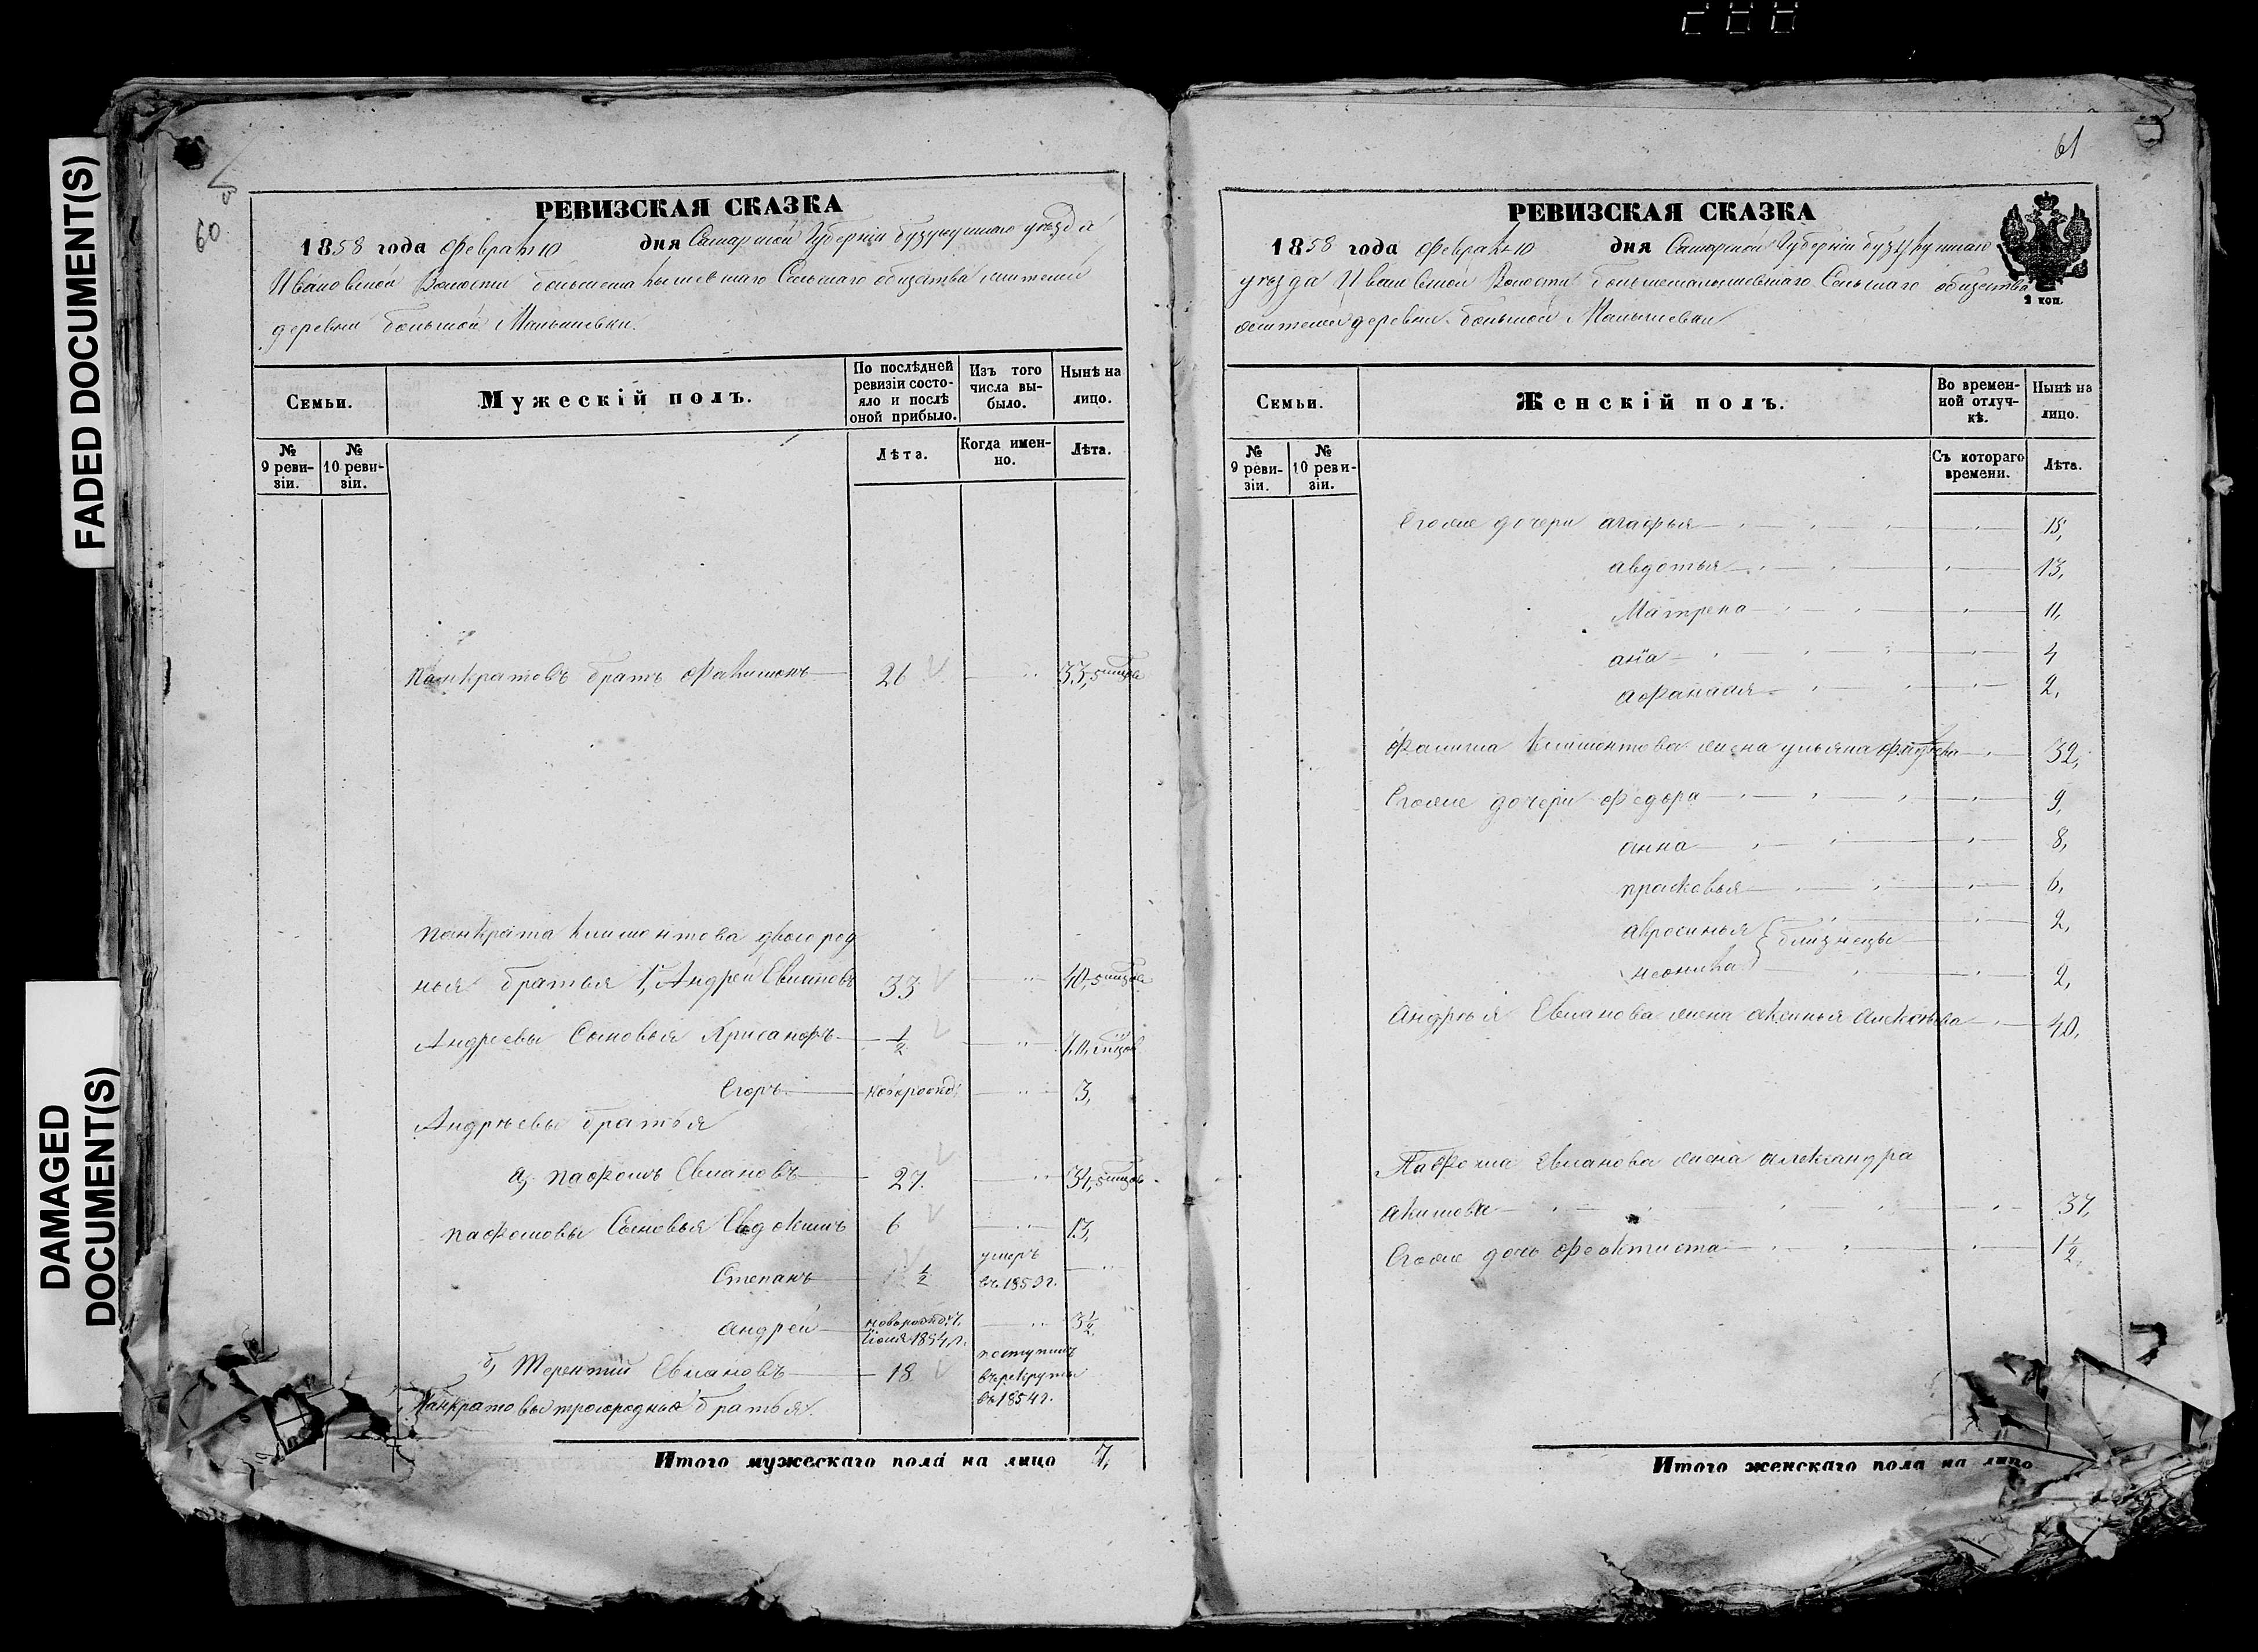 FADED DOCUMENT(S)
DAMAGED
DOCUMENT(S)
60
РЕВИЗСКАЯ СКАЗКА
1858 года февраля 10 дня Самарской Губерніи бузулуцкаго уѣзда
Ивановской Волости большема лышевскаго Сельскаго общества жителей
деревни большой Малышевки.
Семьи.
Мужескій полъ.
По послѣдней
ревизіи состо-
яло и послѣ
оной прибыло.
Изъ того
числа вы-
было.
Нынѣ на
лицо.
№
9 реви-
зіи.
№
10 реви-
зіи.
Лѣта.
Когда имен-
но.
Лѣта.
Панкратовъ братъ Филимонъ 26 33,
Панкрата Климонтова двоюрод
ныя братья 1, Андрей 33 40,
Андреевы Сыновья Хрисанфъ 1/2
Егоръ 3,
Андрѣевы братья
а, Пафомъ 27. 34,
Пафомовы Сыновья Евдокимъ 6 13,
Степанъ 1/2 умеръ
въ 185 г.
андрей новорожд. 3 1/2
1854 г.
б, Терентий 18 поступилъ
въ рекруты
въ 1854 г.
Панкратовы троюродныя братья.
Итого мужескаго пола на лицо 7,
61
РЕВИЗСКАЯ СКАЗКА
1858 года февраля 10 дня Самарской Губерніи бузулуцкаго
уѣзда Ивановской Волости большемалышевскаго Сельскаго общества
жителей деревни большой Малышевки
2 коп.
Семьи.
Женскій полъ.
Во времен-
ной отлуч-
кѣ.
Нынѣ на
лицо.
№
9 реви-
зіи.
№
10 реви-
зіи.
Съ котораго
времени.
Лѣта.
Егоже дочери агафья 15,
авдотья 13,
Матрена 11,
ан'а 4
афанасія 2,
Климонтова жена ульяна 32,
Егоже дочери федора 9,
анна 8,
прасковья 6,
авросинья близнецы 2,
леонила 2,
Андрѣя жена аксинья 40,
Пафома жена александра
акимова 37,
Егоже дочь феоктиста 1 1/2,
Итого женскаго пола на лицо